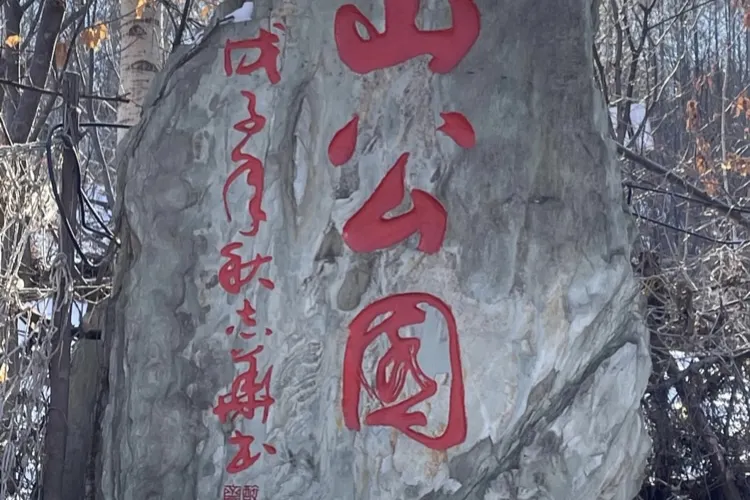 山公園
戊子年秋志華书